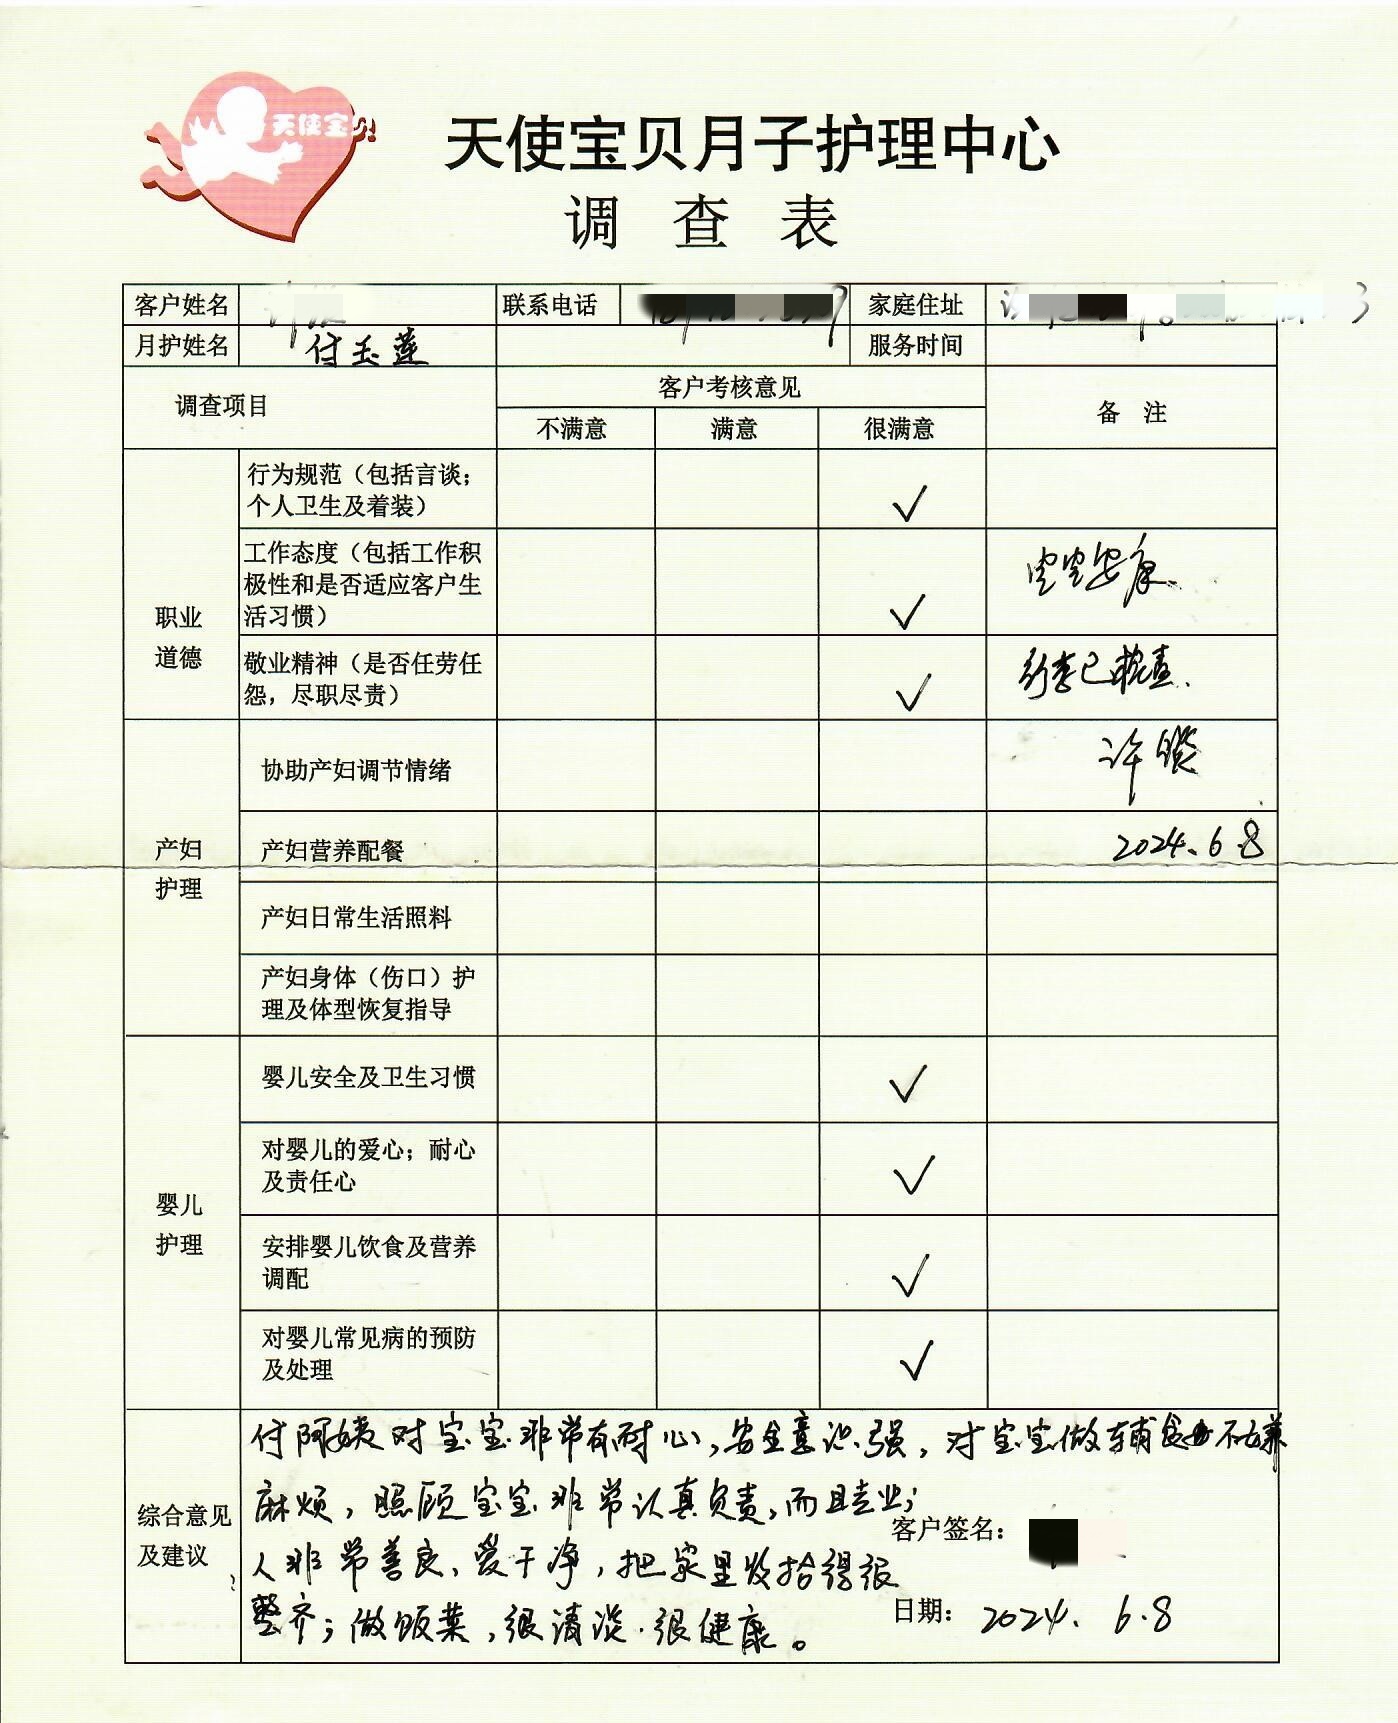 天使宝贝
天使宝贝月子护理中心
调查表
客户姓名 联系电话 家庭住址
月护姓名 付玉莲 服务时间
调查项目 客户考核意见 备注
不满意 满意 很满意
职业
道德
行为规范（包括言谈；
个人卫生及着装）
✓
工作态度（包括工作积
极性和是否适应客户生
活习惯）
✓
宝宝安康.
敬业精神（是否任劳任
怨，尽职尽责）
✓
行李已检查.
产妇
护理
协助产妇调节情绪
许
产妇营养配餐
2024.6.8
产妇日常生活照料
产妇身体（伤口）护
理及体型恢复指导
婴儿
护理
婴儿安全及卫生习惯
✓
对婴儿的爱心；耐心
及责任心
✓
安排婴儿饮食及营养
调配
✓
对婴儿常见病的预防
及处理
✓
综合意见
及建议
付阿姨对宝宝非常有耐心，安全意识强，对宝宝做辅食也不嫌
麻烦，照顾宝宝非常认真负责，而且专业；
人非常善良、爱干净，把家里收拾得很
整齐；做饭菜，很清淡.很健康。
客户签名：
日期： 2024. 6.8